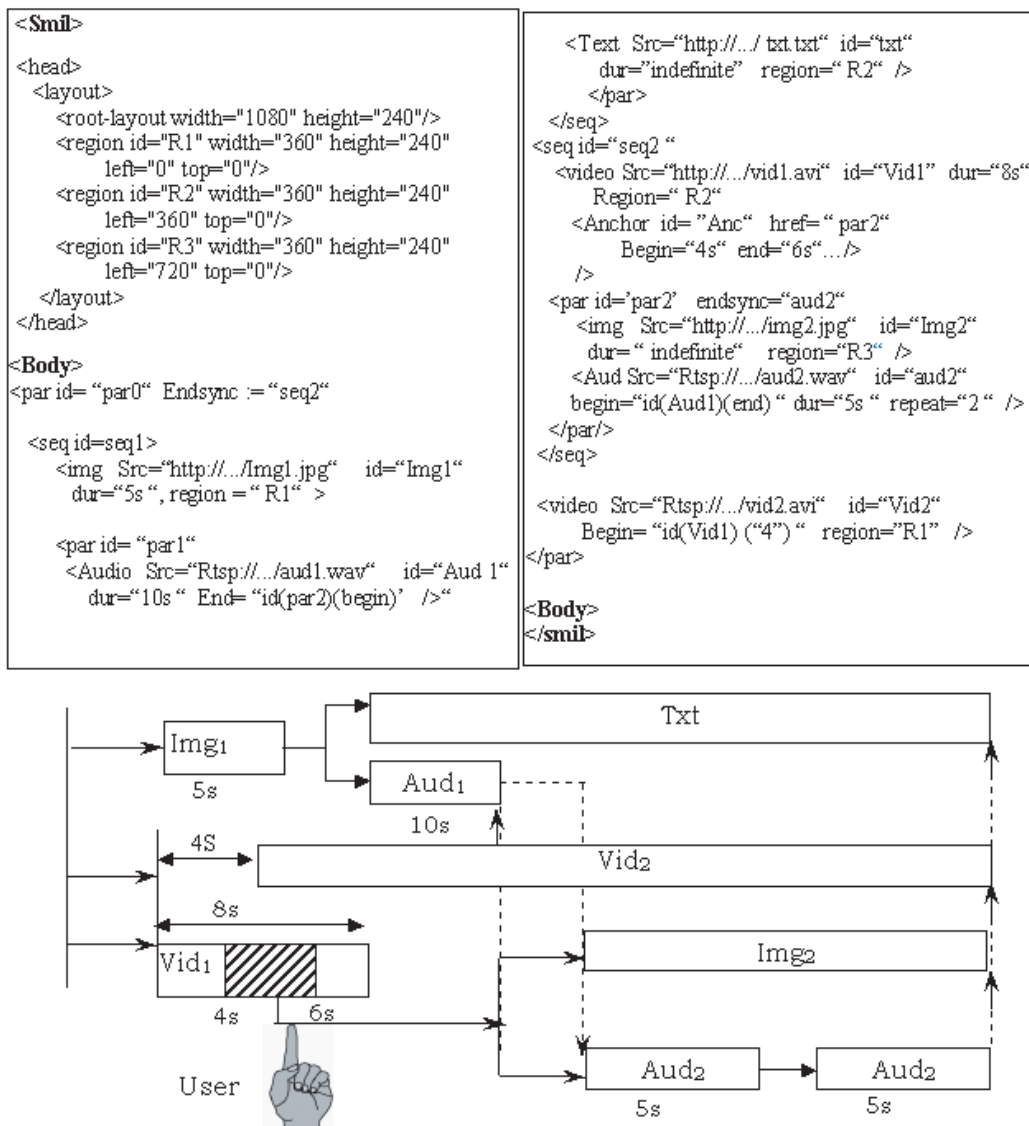 <Smil>
<head>
<layout>
<root-layout width="1080" height="240"/>
<region id="R1" width="360" height="240"
left="0" top="0"/>
<region id="R2" width="360" height="240"
left="360" top="0"/>
<region id="R3" width="360" height="240"
left="720" top="0"/>
</layout>
</head>
<Body>
<par id= “par0“ Endsync := “seq2“
<seq id=seq1>
<img Src=“http://.../Img1.jpg“ id=“Img1“
dur=“5s “, region = “ R1“ >
<par id= “par1“
<Audio Src=“Rtsp://.../aud1.wav“ id=“Aud 1“
dur=“10s “ End= “id(par2)(begin)’ />“
<Text Src=“http://.../ txt.txt“ id=“txt“
dur=”indefinite” region=“ R2“ />
</par>
</seq>
<seq id=“seq2 “
<video Src=“http://.../vid1.avi“ id=“Vid1” dur=“8s“
Region=“ R2“
<Anchor id= ”Anc“ href= “ par2“
Begin=“4s“ end=“6s“.../>
/>
<par id=‘par2’ endsync=“aud2“
<img Src=“http://.../img2.jpg“ id=“Img2“
dur= “ indefinite“ region=“R3“ />
<Aud Src=“Rtsp://.../aud2.wav“ id=“aud2“
begin=“id(Aud1)(end) “ dur=“5s “ repeat=“2 “ />
</par/>
</seq>
<video Src=“Rtsp://.../vid2.avi“ id=“Vid2“
Begin= “id(Vid1) (“4”) “ region=”R1” />
</par>
<Body>
</smil>
Txt
Img1
5s
Aud1
10s
4S
Vid2
8s
Vid1
Img2
4s
6s
User
Aud2
Aud2
5s
5s